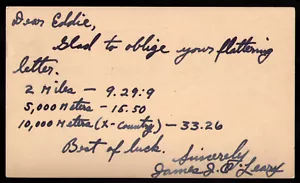 Dear Eddie,
Glad to oblige your flattering
letter.
2 Miles - 9.29.9
5,000 Meters - 15.50
10,000 Meters (X-Country) - 33.26
Best of luck.
Sincerely
James J. O'Leary